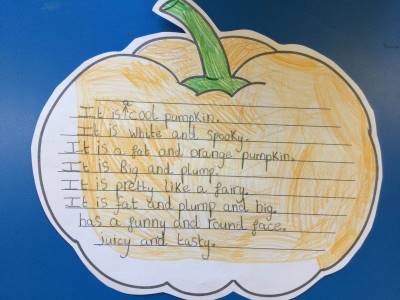 It is a cool pumpkin.
It is white and spooky.
It is a fat and orange pumpkin.
It is Big and plump.
It is pretty like a fairy.
It is fat and plump and big.
has a funny and round face.
juicy and tasty.